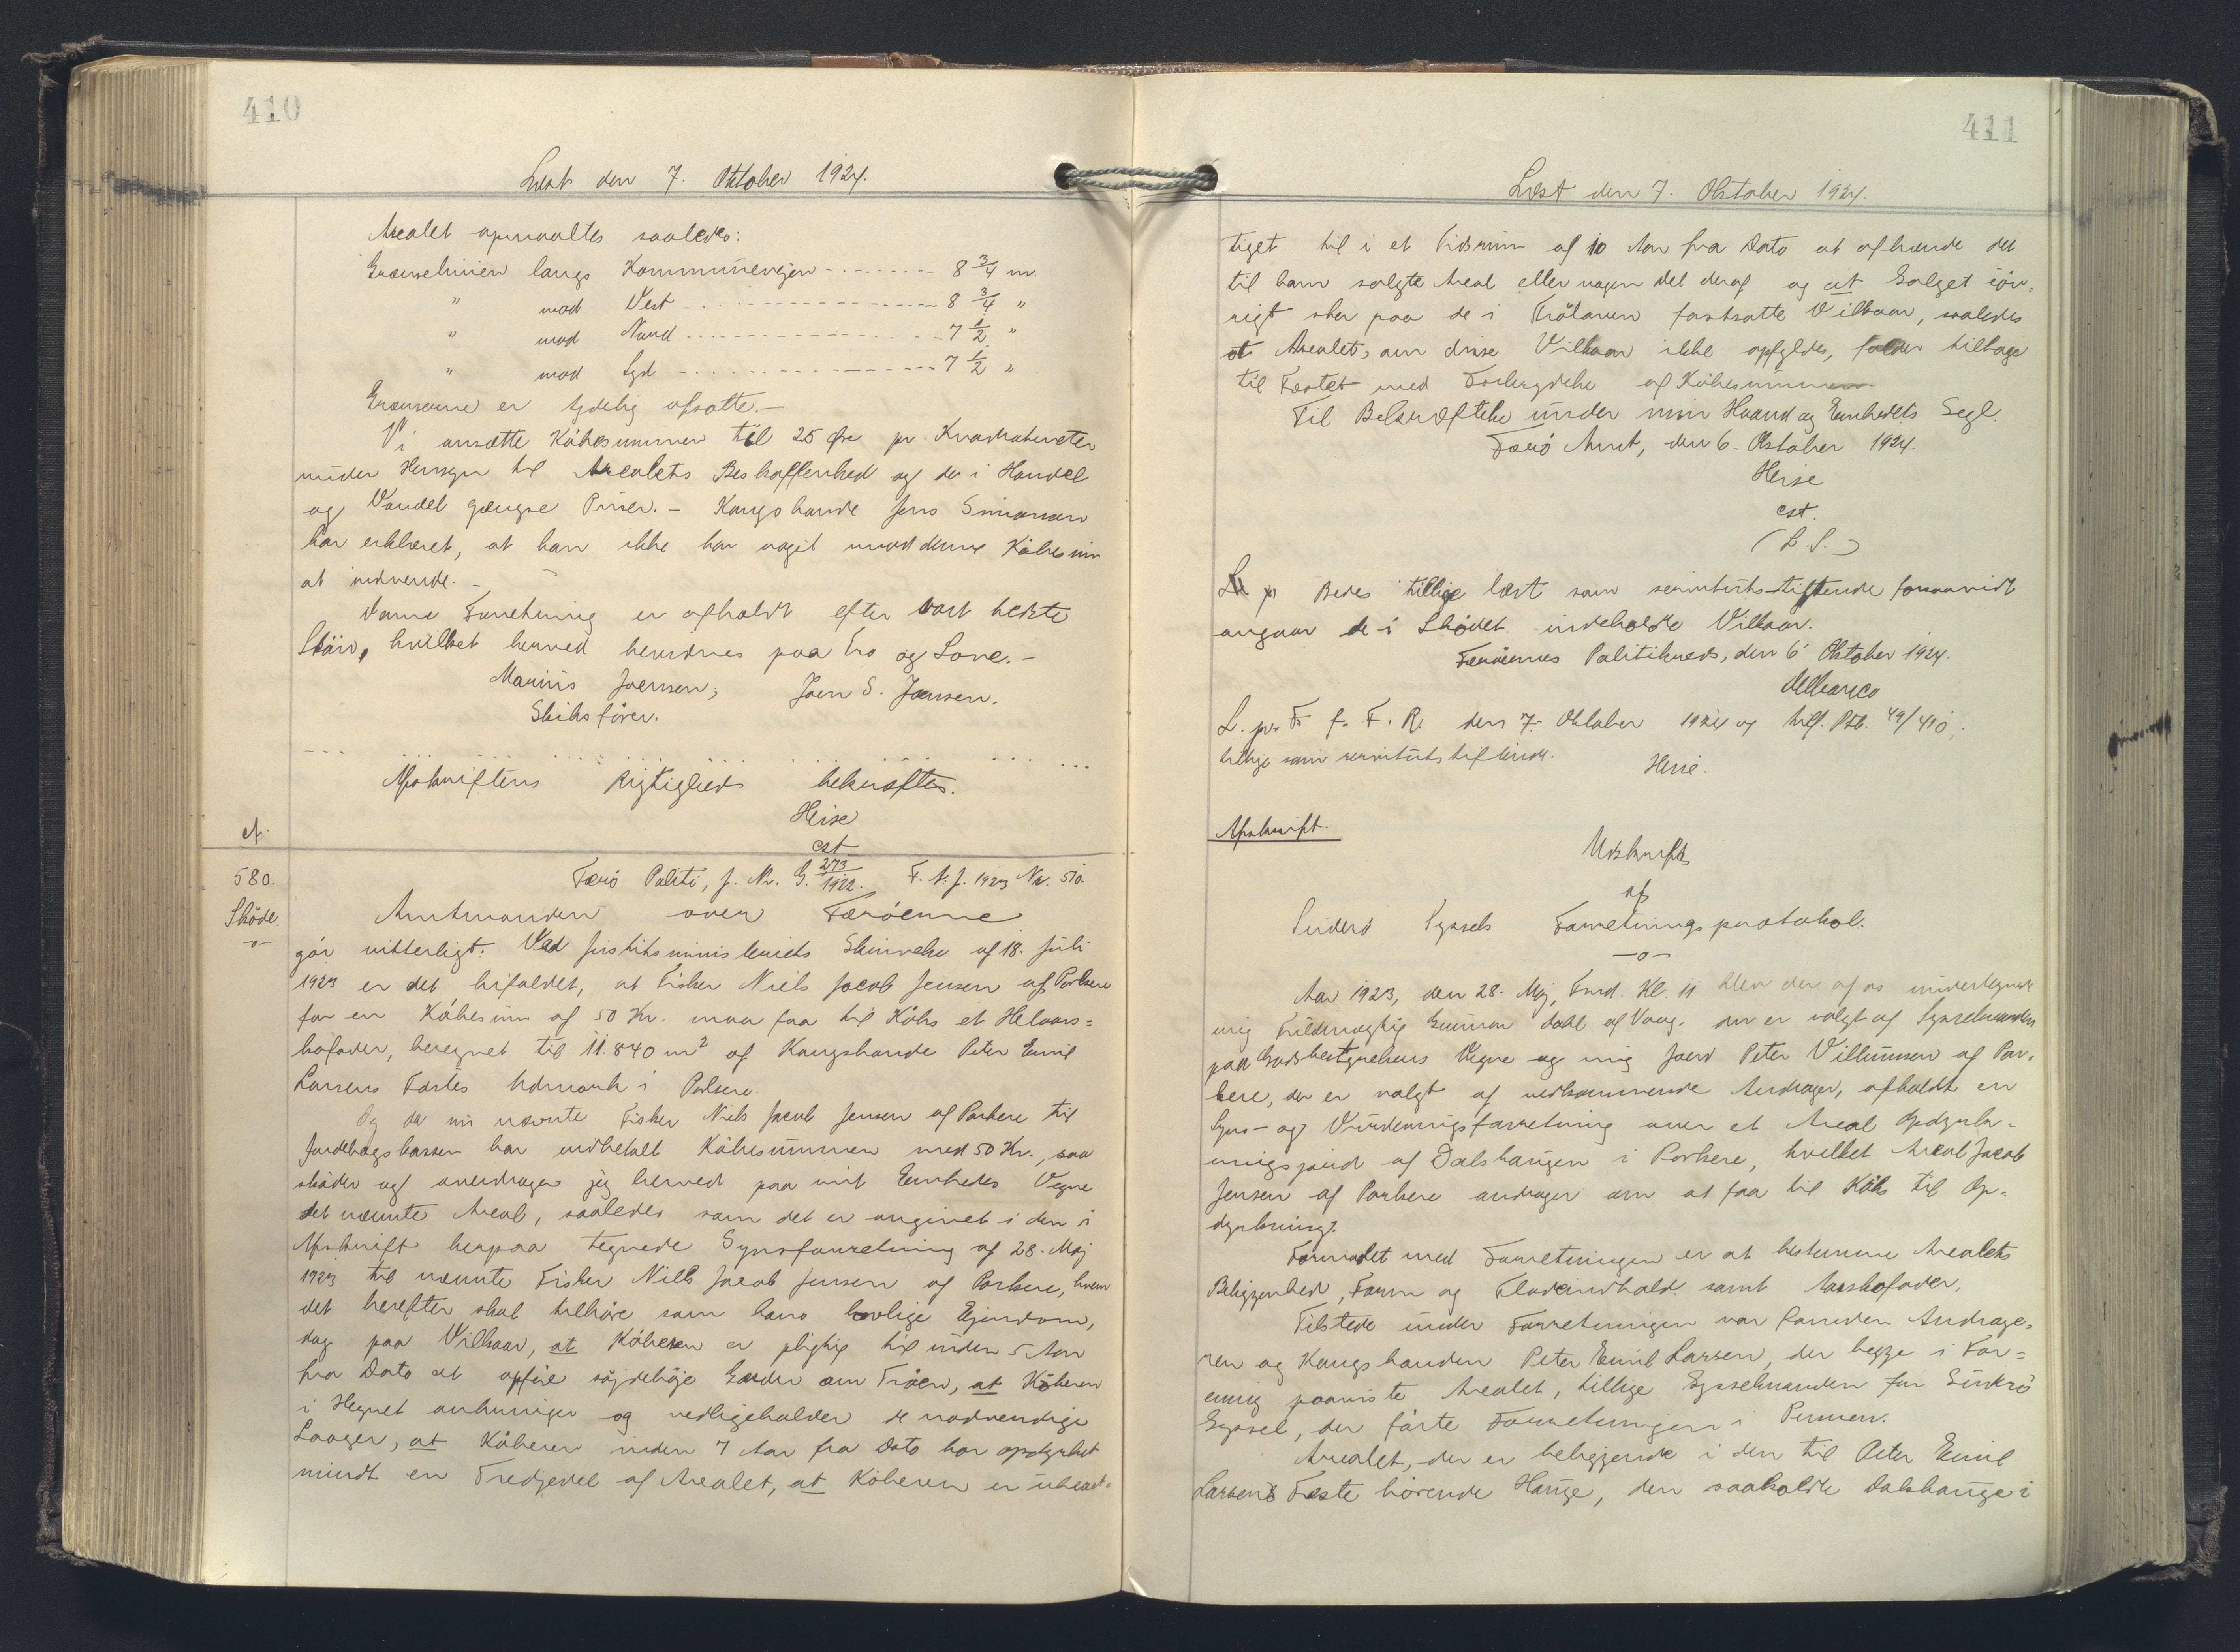 410
Læst den 7. Oktober 1924.
Arealet opmaaltes saaledes:
Grænselinien langs Kommunevejen - - - - - - - - 8 3/4 m.
" mod Vest - - - - - - - - 8 3/4 "
" mod Nord - - - - - - - - 7 1/2 "
" mod Syd - - - - - - - - 7 1/2 "
Grænserne er tydelig afsatte.-
Vi ansætte Købesummen til 25 Øre pr. Kvadratmeter
under Hensyn til Arealets Beskaffenhed og de i Handel
og Vandel gængse Priser. - Kongsbonde Jens Simonsen
har erklæret, at han ikke har noget mod denne Købesum
at indvende. -
Denne Forretning er afholdt efter vort bedste
Skön, hvilket herved bevidnes paa Tro og Love. -
Marius Joensen, Joen S. Joensen.
Skibsfører.
Afskriftens Rigtighed bekræftes.
Heise
cst
cf.
580.
Færö Politi, J. Nr. G. 273/1922. F. A. J. 1923 Nr. 510.
Sköde.
-o-
Amtmanden over Færöerne
gör vitterligt: Ved Justitsministeriets Skrivelse af 18. Juli
1923 er det bifaldet, at Fisker Niels Jacob Jensen af Porkere
for en Købesum af 50 Kr. maa faa til Købs et Helaars=
kofoder, beregnet til 11.840 m² af Kongsbonde Peter Emil
Larsens Fæstes Udmark i Porkere.
Og da nu nævnte Fisker Niels Jacob Jensen af Porkere til
Jordebogskassen har indbetalt Købesummen med 50 Kr., saa
sköder og overdrager jeg herved paa mit Embedes Vegne
det nævnte Areal, saaledes som det er angivet i den i
Afskrift herpaa tegnede Synsforretning af 28. Maj
1923 til nævnte Fisker Niels Jacob Jensen af Porkere, hvem
det herefter skal tilhøre som hans lovlige Ejendom,
dog paa Vilkaar, at Köberen er pligtig til inden 5 Aar
fra Dato at opføre søjdehöje Gærder om Tröen, at Köberen
i Hegnet anbringer og vedligeholder de nødvendige
Laager, at Köberen inden 7 Aar fra Dato har opdyrket
mindst en Trediedel af Arealet, at Köberen er uberet=
411
Læst den 7. Oktober 1924.
tiget til i et Tidsrum af 10 Aar fra Dato at afhænde det
til ham solgte Areal eller nogen Del deraf og at Salget iöv=
rigt sker paa de i Trölaven fastsatte Vilkaar, saaledes
at Arealet, om disse Vilkaar ikke opfyldes, falder tilbage
til Fæstet med Fortabelse af Købesummen
Til Bekræftelse under min Haand og Embedets Segl.
Færö Amt, den 6. Oktober 1924.
Heise
cst.
(L. S.)
Bedes tillige læst som servitutsstiftende forsaavidt
angaar de i Skødet indeholdte Vilkaar.
Færøernes Politikreds, den 6 Oktober 1924.
L. p. F f. F. R. den 7. Oktober 1924 og tilf. Ptb. 49/410,
tillige som servitutstiftende.
Heise.
Afskrift.
Udskrift
af
Suderö Syssels Forretningsprotokol.
-o-
Aar 1923, den 28. Maj, Fmd. Kl. 11 blev der af os undertegnede
mig Fuldmægtig Gunnar Dahl af Vaag, der er valgt af Sysselmanden
paa Godsbestyrelsens Vegne og mig Joen Peter Villumsen af Por=
kere, der er valgt af vedkommende Andrager, afholdt en
Syns- og Vurderingsforretning over et Areal Opdyrk=
ningsjord af Dalshaugen i Porkere, hvilket Areal Jacob
Jensen af Porkere andrager om at faa til Købs til Op=
dyrkning.
Formaalet med Forretningen er at bestemme Arealets
Beliggenhed, Form og Fladeindhold samt Aarskofoder.
Tilstede under Forretningen var foruden Andrage=
ren og Kongsbonden Peter Emil Larsen, der begge i For=
ening paaviste Arealet, tillige Sysselmanden for Suderö
Syssel, der förte Forretningen i Pennen.
Arealet, der er beliggende i den til Peter Emil
Larsens Fæste hörende Hauge, den saakaldte Dalshauge i